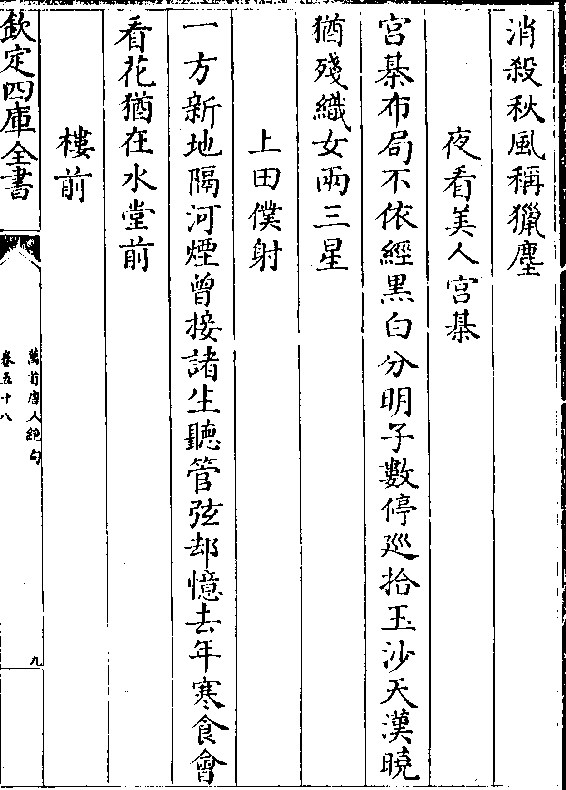 消殺秋風稱獵塵
夜看美人宮棊
宮棊布局不依經黑白分明子數停廵拾玉沙天漢曉
猶殘織女兩三星
上田僕射
一方新地隔河煙曾接諸生聽管弦却憶去年寒食會
看花猶在水堂前
樓前
欽定四庫全書
萬首唐人絕句
卷五十八
九